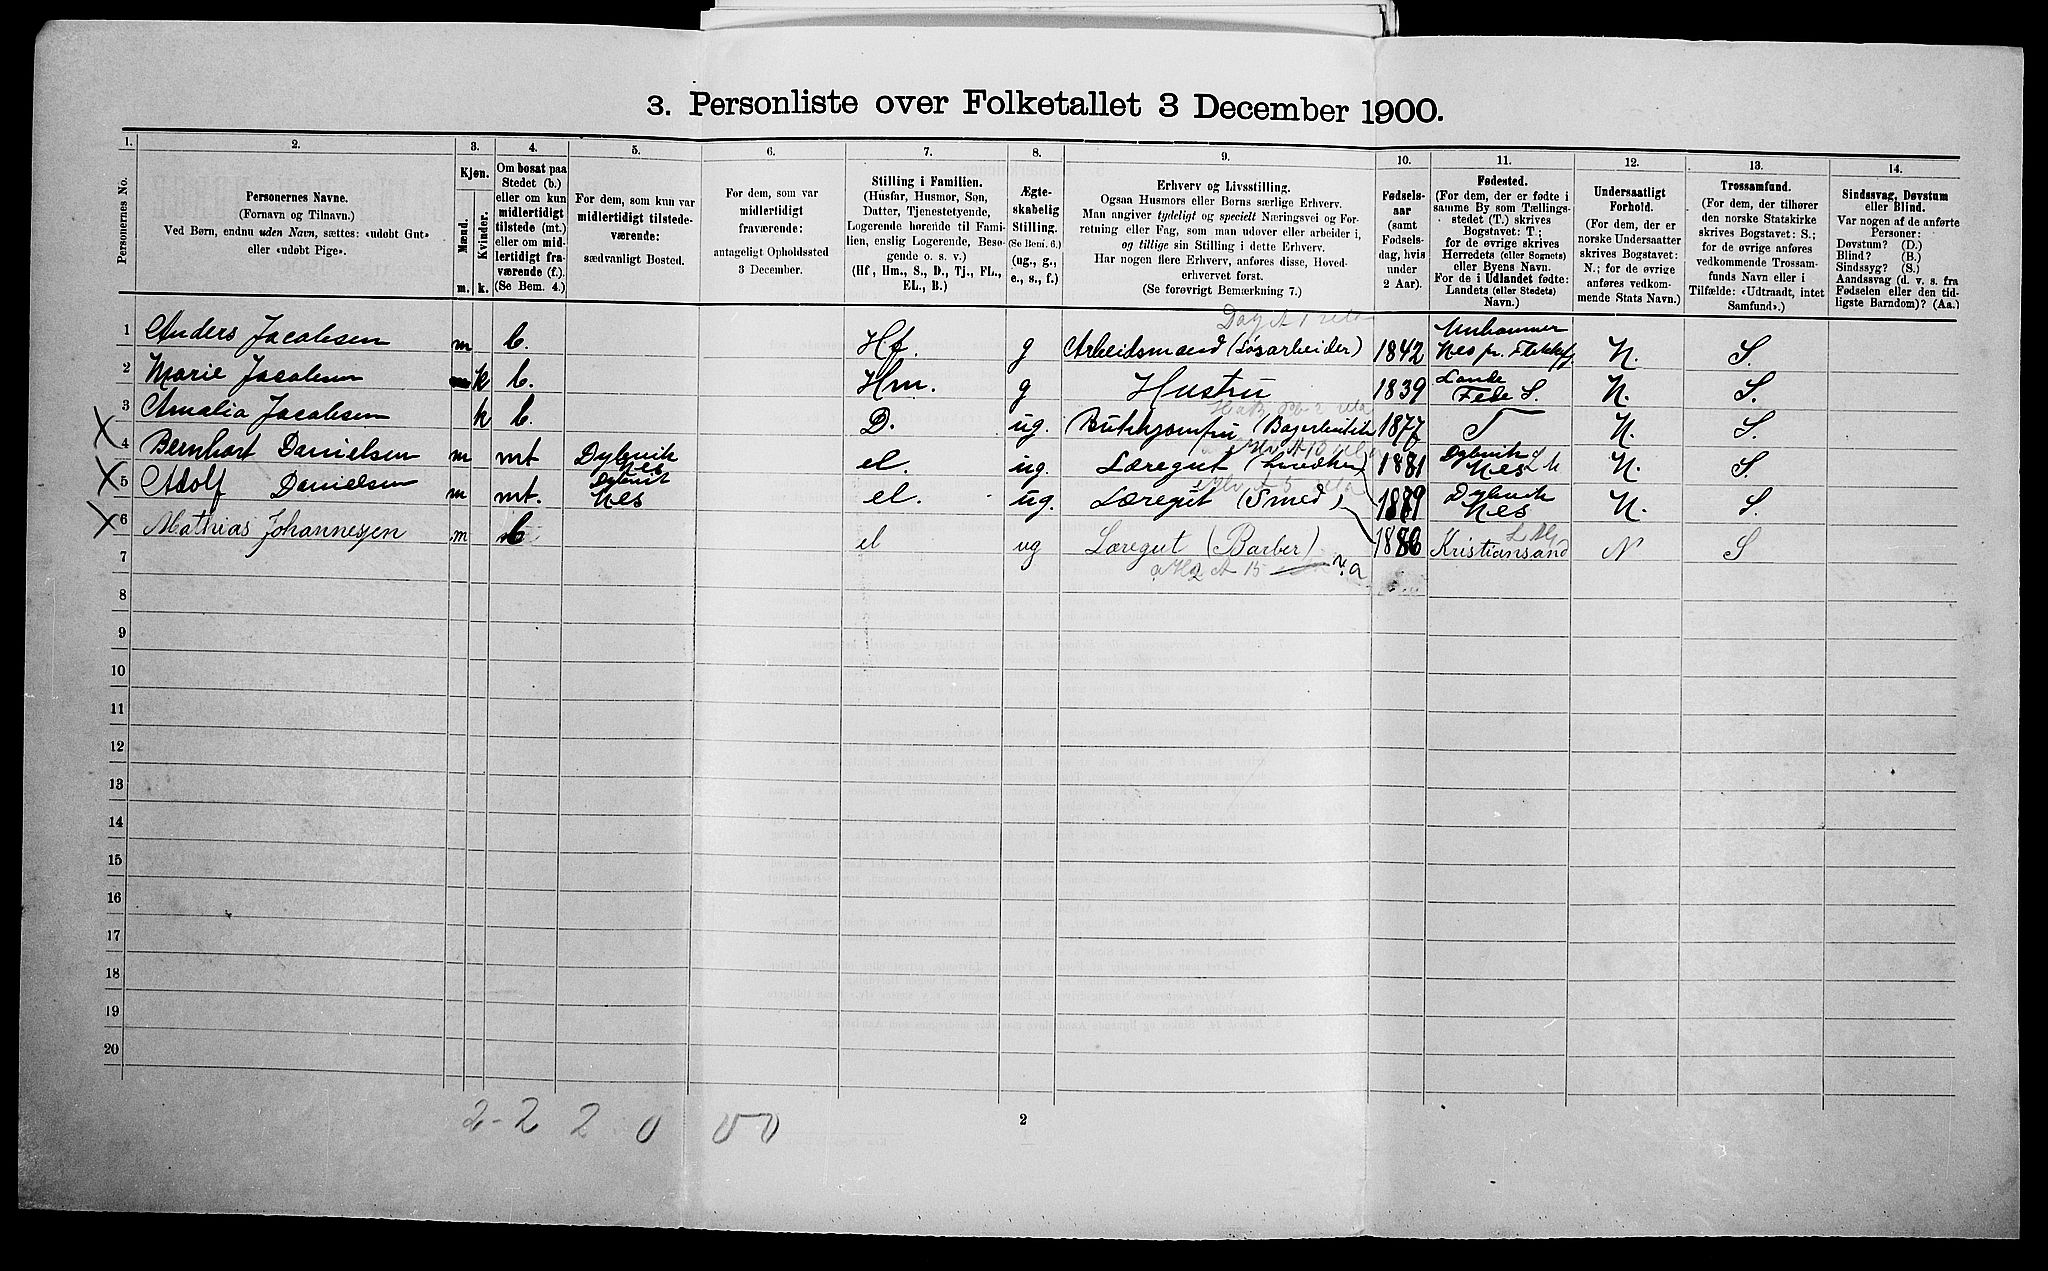 3. Personliste over Folketallet 3 December 1900.
1. 2. 3. 4. 5. 6. 7. 8. 9. 10. 11. 12. 13. 14.
Personernes No.
Personernes Navne.
(Fornavn og Tilnavn.)
Ved Børn, endnu uden Navn, sættes: «udøbt Gut»
eller «udøbt Pige».
Kjøn.
Mænd.
Kvinder.
m. k.
Om bosat paa
Stedet (b.)
eller om kun
midlertidigt
tilstede (mt.)
eller om mid-
lertidigt fra-
værende (f.).
(Se Bem. 4.)
For dem, som var
midlertidigt tilstede-
værende:
sædvanligt Bosted.
For dem, som var
midlertidigt
fraværende:
antageligt Opholdssted
3 December.
Stilling i Familien.
(Husfar, Husmor, Søn,
Datter, Tjenestetyende,
Logerende hørende til Fami-
lien, enslig Logerende, Besø-
gende o. s. v.)
(Hf, Hm., S., D., Tj., FL.,
EL., B.)
Ægte-
skabelig
Stilling.
(Se Bem. 6.)
(ug., g.,
e., s., f.)
Erhverv og Livsstilling.
Ogsaa Husmors eller Børns særlige Erhverv.
Man angiver tydeligt og specielt Næringsvei og For-
retning eller Fag, som man udover eller arbeider i,
og tillige sin Stilling i dette Erhverv.
Har nogen flere Erhverv, anføres disse, Hoved-
erhvervet først.
(Se forøvrigt Bemærkning 7.)
Fødsels-
aar
(samt
Fødsels-
dag, hvis
under
2 Aar).
Fødested.
(For dem, der er fødte i
samme By som Tællings-
stedet (T.) skrives
Bogstavet: T.;
for de øvrige skrives
Herredets (eller Sognets)
eller Byens Navn.
For de i Udlandet fødte:
Landets (eller Stedets)
Navn.)
Undersaatligt
Forhold.
(For dem, der er
norske Undersaatter
skrives Bogstavet:
N.; for de øvrige
anføres vedkom-
mende Stats Navn.)
Trossamfund.
(For dem, der tilhører
den norske Statskirke
skrives Bogstavet: S.;
for de øvrige anføres
vedkommende Trossam-
funds Navn eller i
Tilfælde: «Udtraadt, intet
Samfund».)
Sindssvag, Døvstum
eller Blind.
Var nogen af de anførte
Personer:
Døvstum? (D.)
Blind? (B.)
Sindssyg? (S.)
Aandssvag (d. v. s. fra
Fødselen eller den tid-
ligste Barndom)? (Aa.)
1 Anders Jacobsen m b. Hf. g Arbeidsmand (Løsarbeider) 1842 Nes pr. N. S.
2 Marie Jacobsen k b. Hm. g Hustru 1839 Lande Fede S. N. S.
3 Amalia Jacobsen k b. D. ug. 1877 T N. S.
X 4 Bernhart Danielsen m mt Dybvik Nes el. ug. Læregut 1881 Dybvik Nes N. S.
X 5 Adolf Danielsen m mt. Dybvik Nes el. ug. Læregut (Smed) 1879 Dybvik Nes N. S.
X 6 Mathias Johannesen m b el ug Læregut (Barber) 1880 Kristiansand N S
7
8
9
10
11
12
13
14
15
16
17
18
19
20
2-2 2 0 00
2